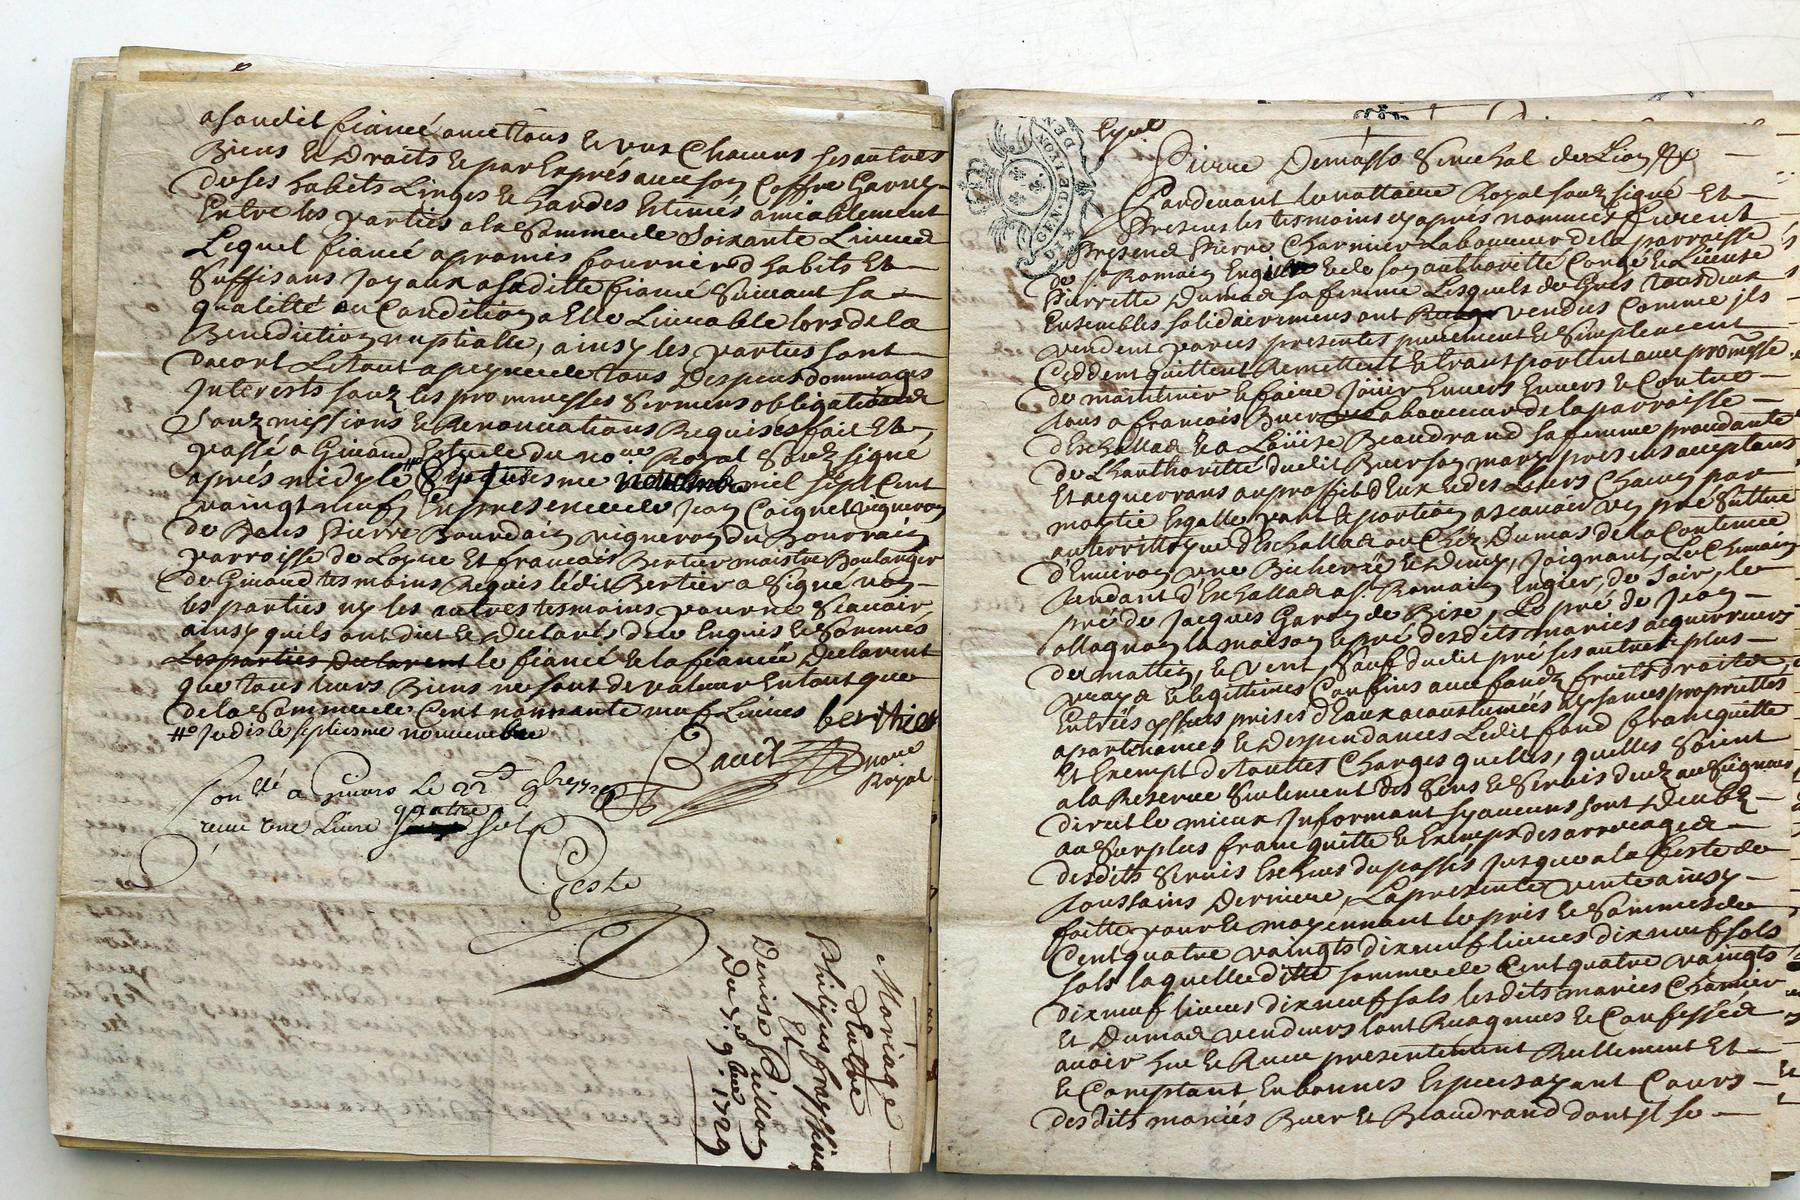 asondit fiancé avec tous & uns Chacuns ses autres
Biens & Droits & par Exprés avec son Coffre Garny
de ses habits Linges & hardes Estimés amiablement
Entre les parties a la Somme de Soixante Livres
Lequel fiancé a promis fournir d'habits Et
Suffisans Joyaux a sa ditte fiancé Suivant sa
qualitté ou Condition a Elle Livrable lors de la
Benediction nuptialle, ainsy les parties sont
dacort Le tout a peyne de tous Despens dommages
Interests souz les prommesses Sermens obligations
Souzmissions & Renonciations Requises fait Et
passé a Givord Estude du no.re Royal Souz signé
aprés midy le mil sept Cent
vaingt neuf En presence de Jean Coignet vigneron
de Bans Pierre Bourdain vigneron du Bourrain
parroisse de Loyre Et francois Bertier maistre Boulanger
de Givord tesmoins Requis ledit Bertier a Signé non
les parties ny les autres tesmoins pour ne Scavoir
ainsy quils ont dict & declarés de ce Enquis & Sommés
Les parties Declarent le fiancé & la fiancéë Declarent
que tous leurs Biens ne sont de valeur En tout que
de la Somme de Cent nonnante neuf Livres berthier
#o Judis le septiesme novembre
no.re Royal
Con.llé a Givors le 22 9bre 1729
receu une Livre quatre sols
Geste
Mariage
Entre
Philipes
Et
Denise
Du 7.e 9.bre 1729
Pierre Demasso Senechal de Lion &c
Pardevant le nottaire Royal souz signé Et
Presens les tesmoins cy aprés nommés furent
Presens Pierre Charnier Laboureur de la parroisse
de S.t Romain Engier & de son authoritté Congé & Licence
Pierrette Dumas sa femme Lesquels de Gres tous deux
Ensembles solidairemens ont vendus Comme ils
vendent par ces presentes purement & Simplement
Ceddent quittent Remettent & transportent avec promesse
de maintenir & faire Joüir Envers Envers & Contre
tous a francois Buer Laboureur de la parroisse
d'Eschallas & a Loüise Beaudrand sa femme proudante
de L'hauthoritté dudit Buer son mary presens acceptans
Et acquerrans au proffit d'Eux & des Leurs Chacun par
moytié Esgalle part & portion ascavoir un pré Scittué
au territtoyre d'Eschallas au Chez Dumas de la Contenüe
d'Environ une Bicherée & demy, Joignant Le Chemain
tendant d'Eschallas a S.t Romain Engier, de Soir, le
pré de Jacques Garon de Bise, Le pré de Jean
ollagnon la maison & pré desdits mariés acquerreurs
de mattin, & vent, Sauf dudit pré ses autres plus
vrays & legittimes Confins avec fonds fruits droits
Entréës yssües prises d'Eaux acoustuméës aysances proprietтés
apartenances & Despendances Ledit fond franc quitte
Et Exempt de touttes Charges quelles, quelles Soient
a la Reserve Seulement des Sens & Servis deuz au Seignour
direct le mieux Informant sy aucuns sont Deubz
au Surplus franc quitte & Exempt des arrerages
desdits Servis Escheus du passés Jusques a la feste de
toussains Derniere, La presente vente ainsy
faitte pour & moyennant le pris & Sommes de
Cent quatre vaingts dix neuf livres dix neuf sols
sols laquelle ditte somme de Cent quatre vaingts
dix neuf livres dix neuf sols lesdits mariés Charnier
Et Dumas vendeurs l'ont & Confessés
avoir hue & Receu presentement Reellement Et
& Comptant En bonnes Especes ayant Cours
desdits mariés Buer Et Beaudrand dont Il se